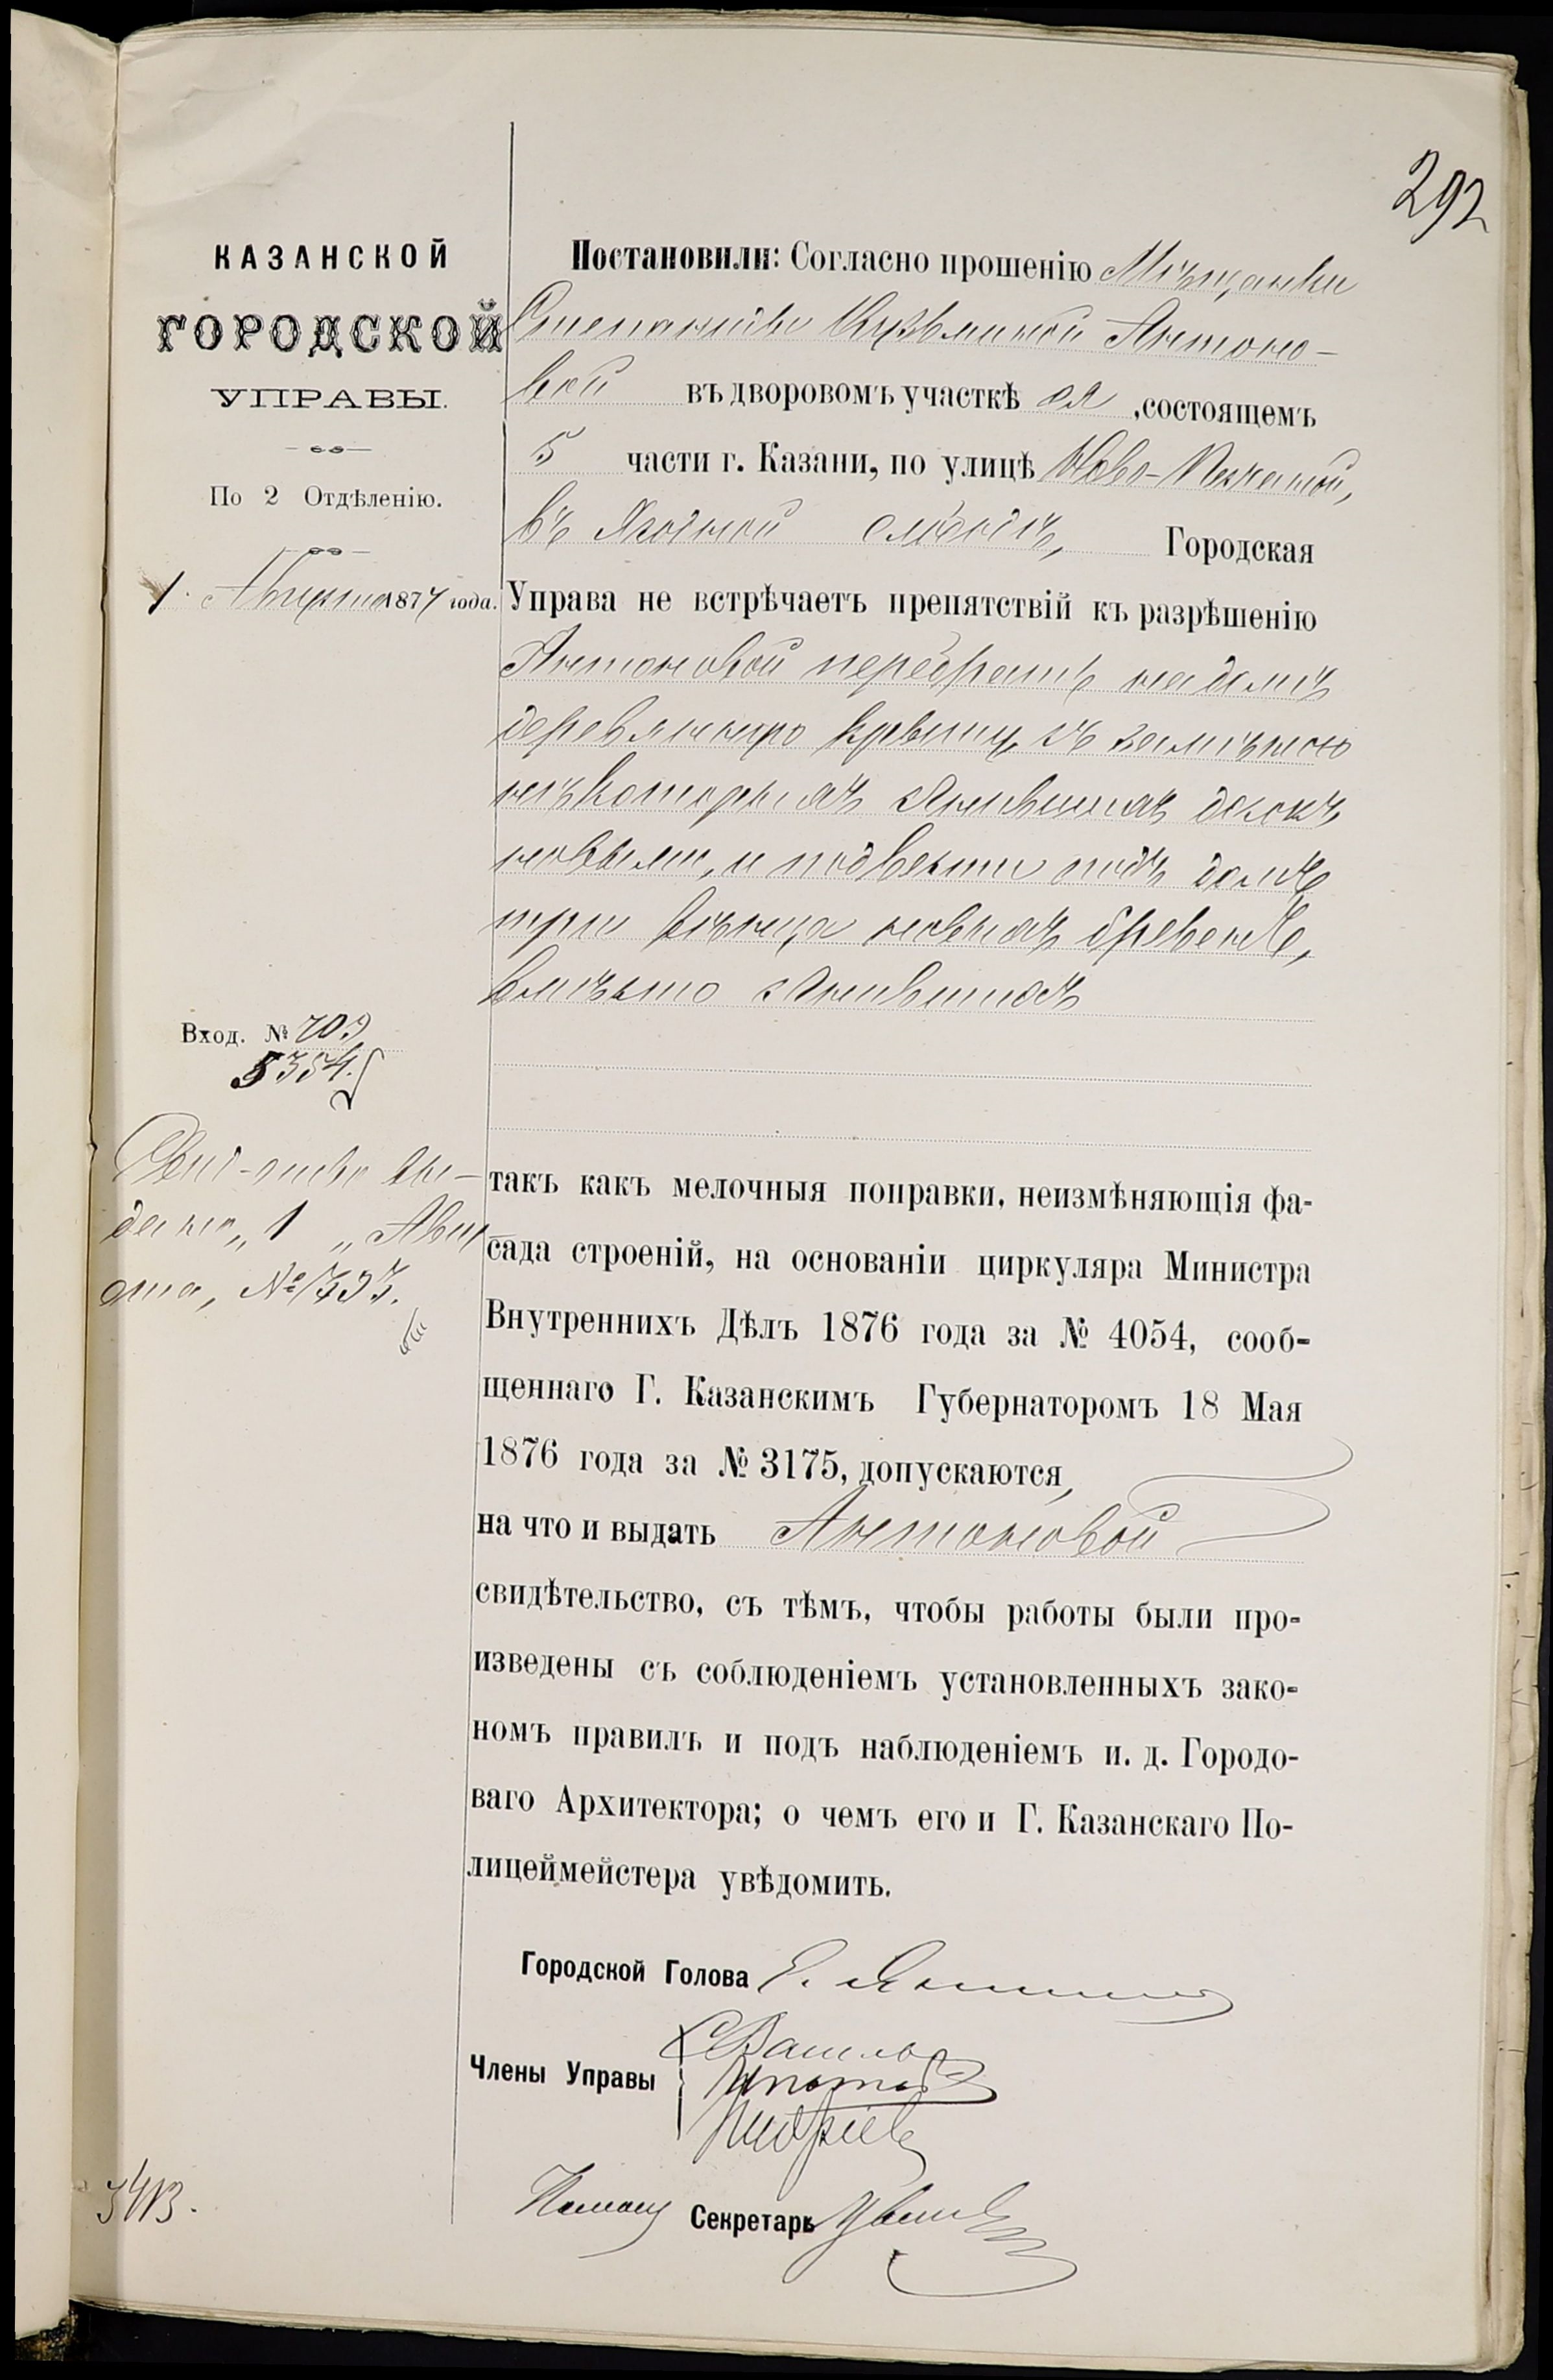 292
КАЗАНСКОЙ
ГОРОДСКОЙ
УПРАВЫ.
По 2 Отдѣленію.
1. Августа 1877 года.
Вход. № 709
5354.
Свид-ство вы-
дано „1„ Авгу
ста, № 1737.
Постановили: Согласно прошенію Мѣщанки
Степаниды Кузьминой Антоно-
вой въ дворовомъ участкѣ ея, состоящемъ
5 части г. Казани, по улицѣ Ново-Песчаной,
въ Ягодной слободѣ, Городская
Управа не встрѣчаетъ препятствій къ разрѣшенію
Антоновой перебрать на домѣ
деревянную крышу съ замѣною
нѣкоторыхъ сгнившихъ досокъ
новыми, и подвести подъ домъ
три вѣнца новыхъ бревенъ,
вмѣсто сгнившихъ
такъ какъ мелочныя поправки, неизмѣняющія фа-
сада строеній, на основаніи циркуляра Министра
Внутреннихъ Дѣлъ 1876 года за № 4054, сооб-
щеннаго Г. Казанскимъ Губернаторомъ 18 Мая
1876 года за № 3175, допускаются,
на что и выдать Антоновой
свидѣтельство, съ тѣмъ, чтобы работы были про-
изведены съ соблюденіемъ установленныхъ зако-
номъ правилъ и подъ наблюденіемъ и. д. Городо-
ваго Архитектора; о чемъ его и Г. Казанскаго По-
лицеймейстера увѣдомить.
Городской Голова Э. Янишевскій
Члены Управы
Ипатовъ
Помощ Секретарь